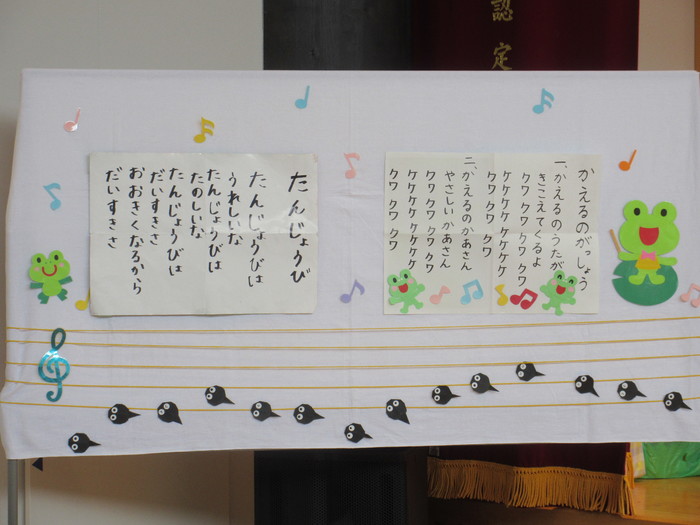 認定
かえるのがっしょう
一、かえるのうたが
きこえてくるよ
クワ クワ クワ クワ
ケケケケ ケケケケ
クワ クワ クワ
二、かえるのかあさん
やさしいかあさん
クワ クワ クワ クワ
ケケケケ ケケケケ
クワ クワ クワ
たんじょうび
たんじょうびは
うれしいな
たんじょうびは
たのしいな
たんじょうびは
だいすきさ
おおきくなるから
だいすきさ